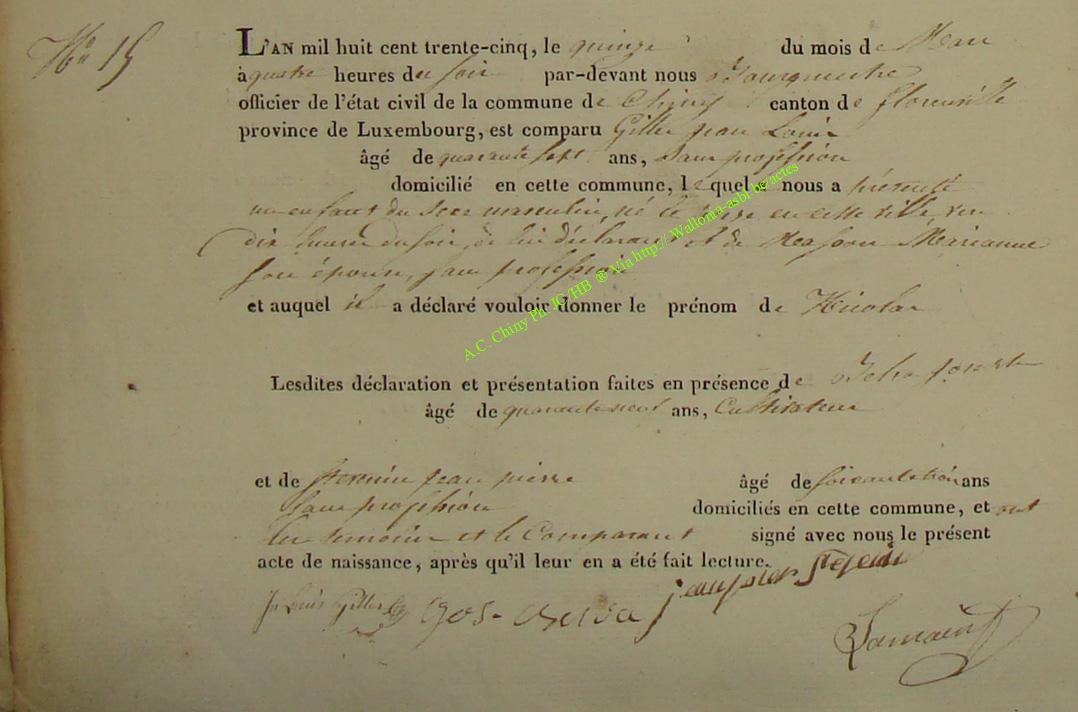 No 15
L'AN mil huit cent trente-cinq, le quinze du mois de Mars
à quatre heures du soir par-devant nous Bourgmestre
officier de l'état civil de la commune de Chiny canton de florenville
province de Luxembourg, est comparu Gilles jean Louis
âgé de quarante sept ans, Sans profession
domicilié en cette commune, lequel nous a présenté
un enfant du sexe masculin, né le en cette ville, vers
dix heures du soir, de lui déclarant et de Masson Marianne
son épouse, sans profession
et auquel il a déclaré vouloir donner le prénom de Nicolas
Lesdites déclaration et présentation faites en présence de
âgé de quarante neuf ans, Cultivateur
et de jean pierre âgé de ans
Sans profession domiciliés en cette commune, et ont
les temoins et le Comparant signé avec nous le présent
acte de naissance, après qu'il leur en a été fait lecture.
Louis Gilles jos-
A.C. Chiny Ph. JG/HB ® Via http:// Wallonia-asbl.be/actes